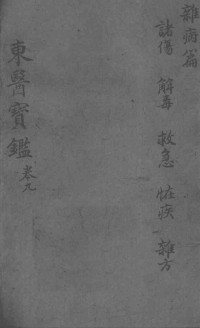 雜病篇
諸傷 解毒 救急 怪疾 雜方
東醫寶鑑 卷九